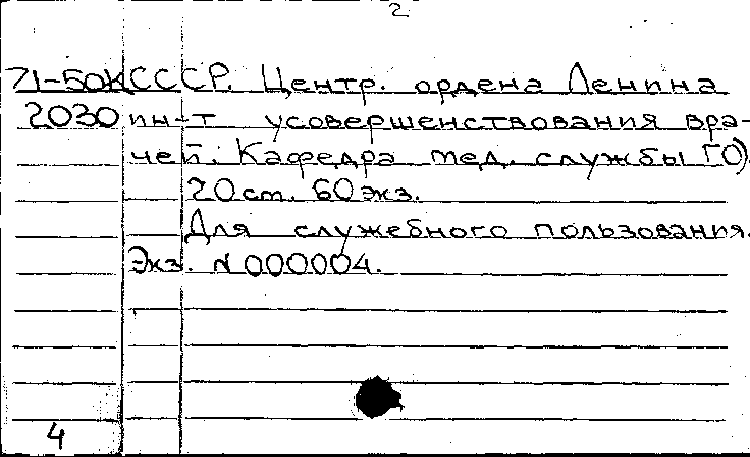 2
71-50К СССР. Центр. ордена Ленина
2030 ин-т усовершенствования вра-
чей. Кафедра мед. службы ГО).
20 см. 60 экз.
Для служебного пользования.
Экз. N 000004.
4